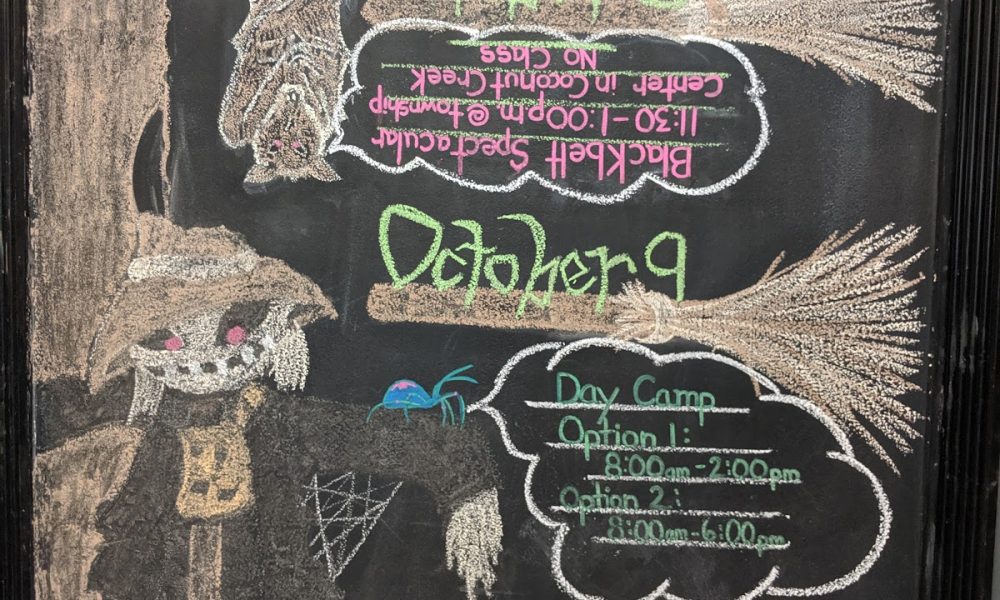 Blackbelt Spectacular
11:30-1:00pm @ township
Center in Coconut Creek
No Class
October 9
Day Camp
Option 1:
8:00am-2:00pm
Option 2:
8:00am-6:00pm